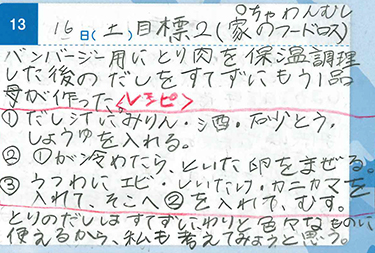 13
16日(土)目標2(家のフードロス)
○ちゃわんむし
バンバージー用にとり肉を保温調理
した後のだしをすてずにもう1品
母が作った。<レシピ>
① だし汁にみりん・酒・砂とう、
しょうゆを入れる。
② ①が冷めたら、といた卵をまぜる。
③ うつわにエビ・しいたけ・カニカマを
入れて、そこへ②を入れて、むす。
とりのだしはすてずにわりと色々なものに
使えるから、私も考えてみようと思う。